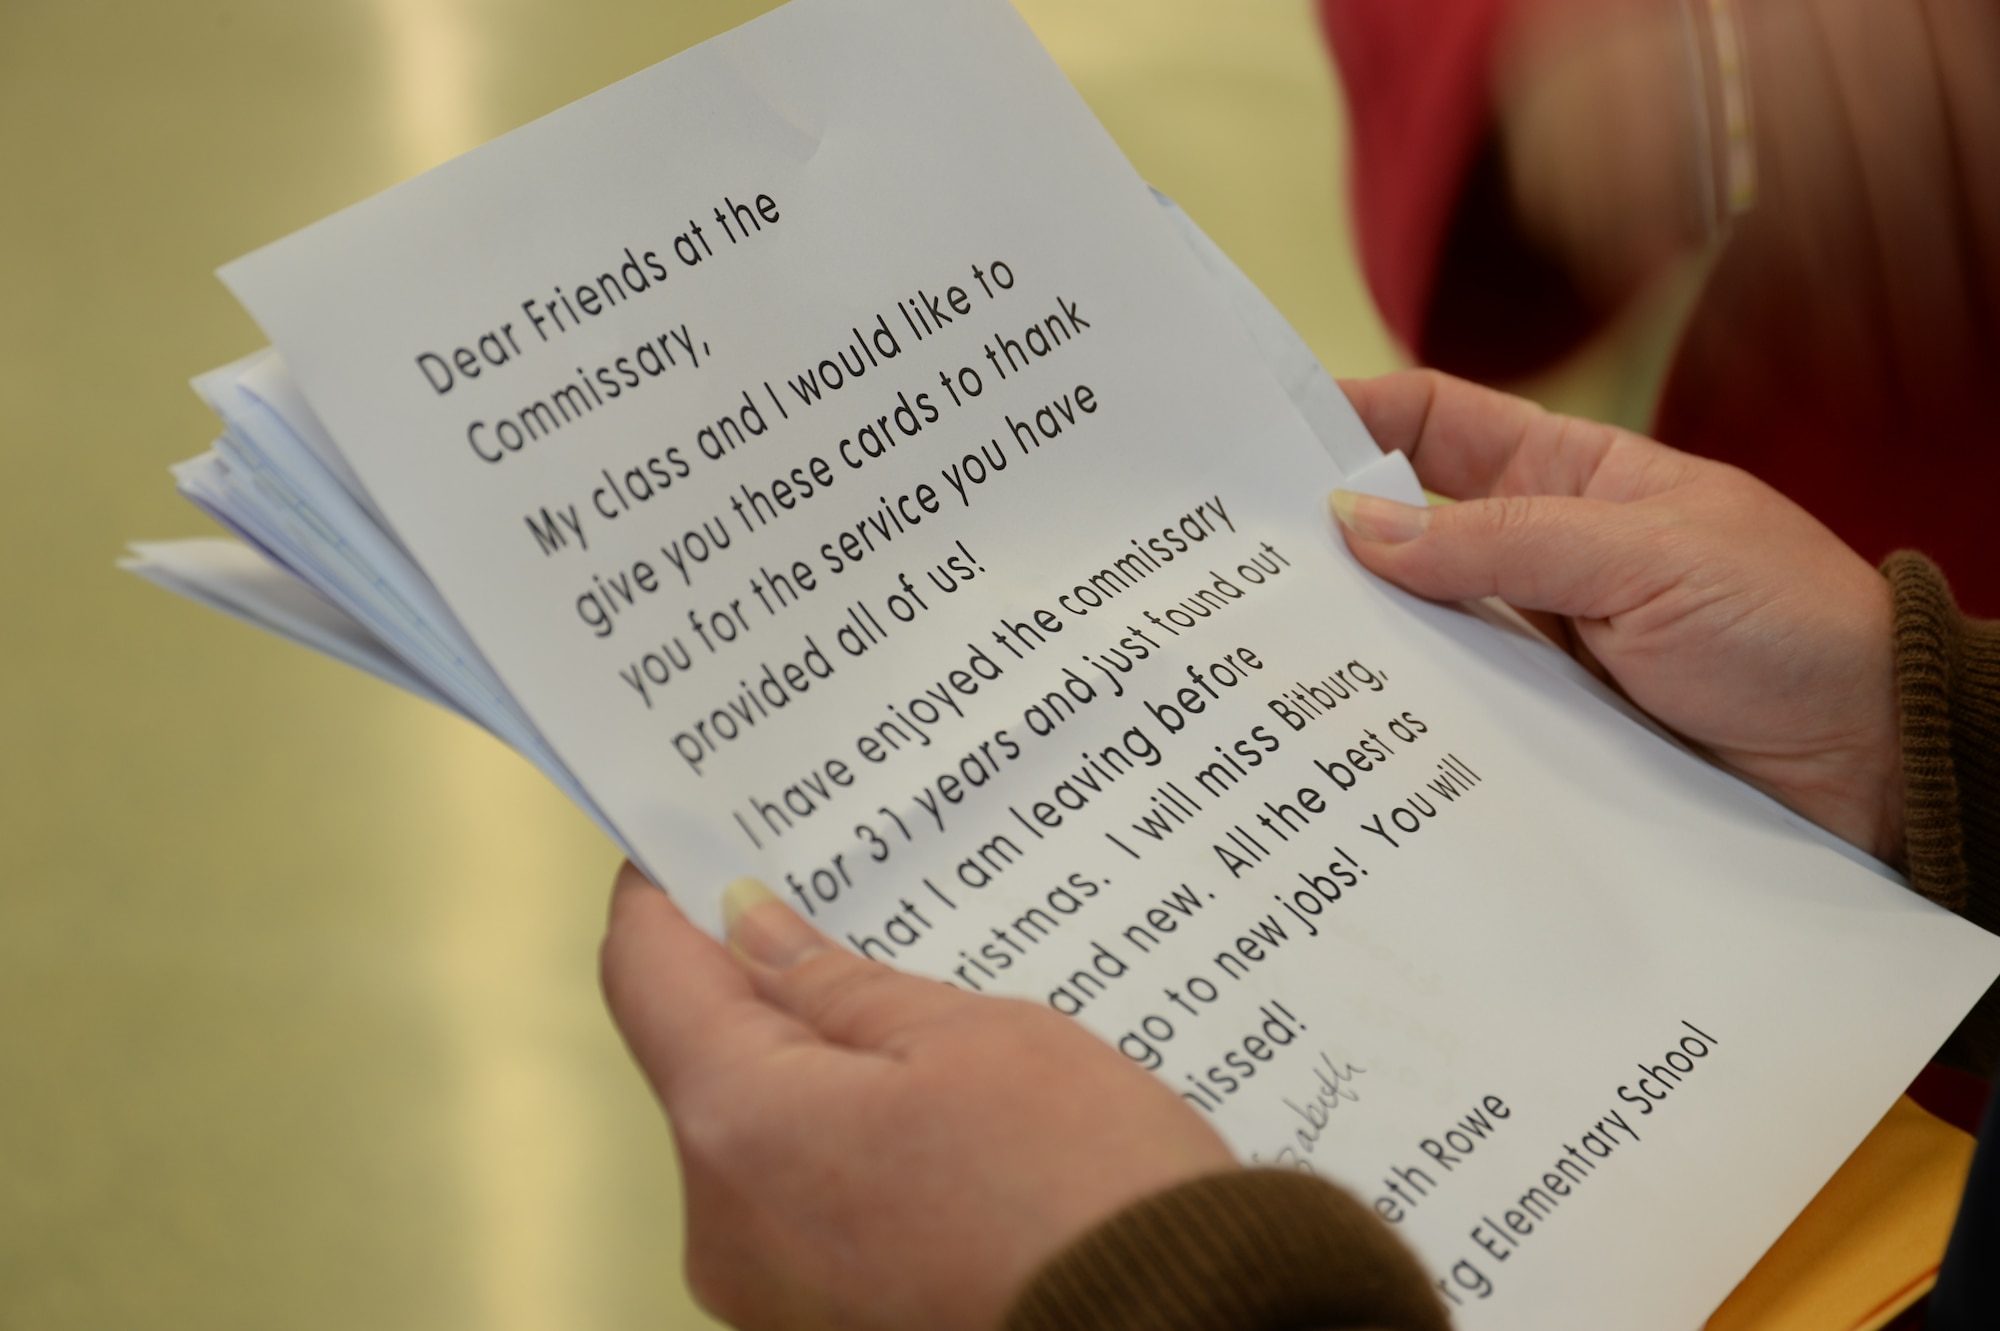 Dear Friends at the
Commissary,
My class and I would like to
give you these cards to thank
you for the service you have
provided all of us!
I have enjoyed the commissary
for 31 years and just found out
hat I am leaving before
ristmas. I will miss Bitburg,
and new. All the best as
go to new jobs! You will
issed!
zabeth
eth Rowe
rg Elementary School